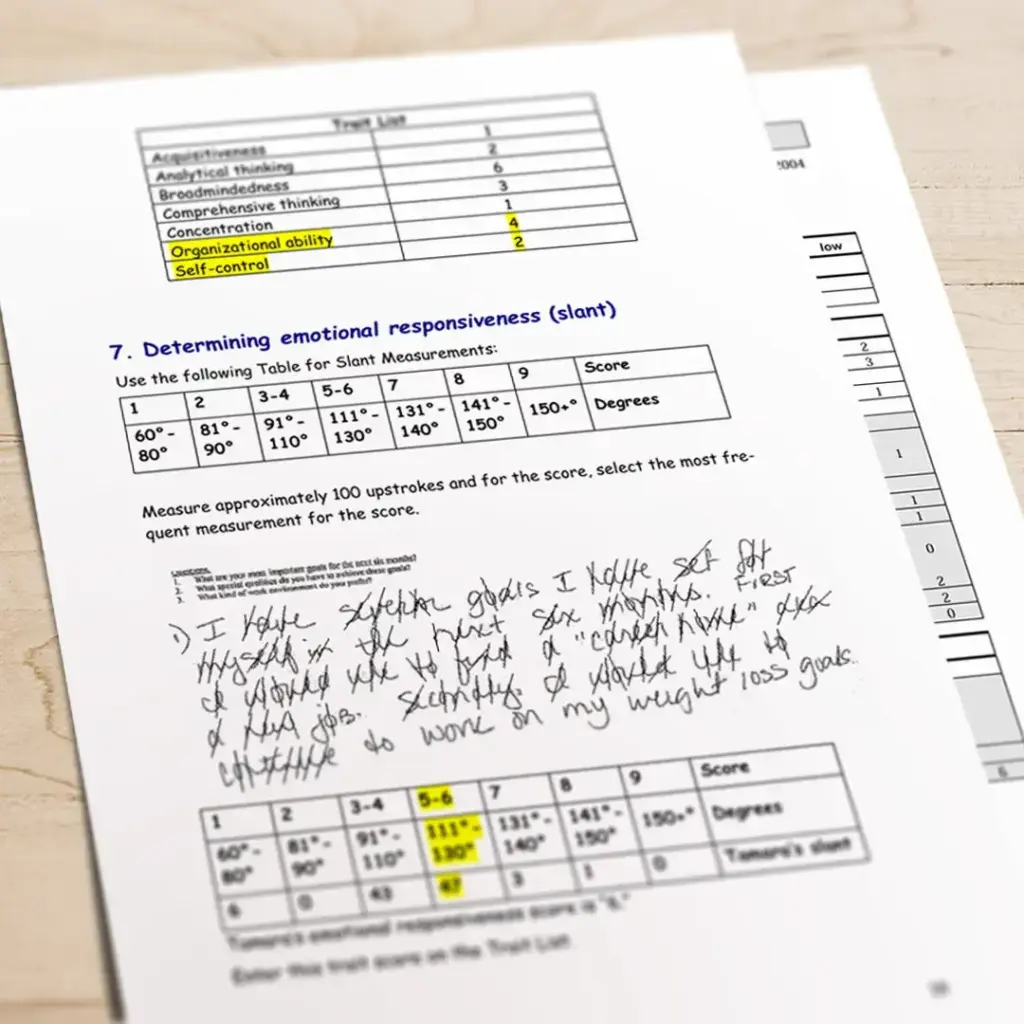 Trait List
Acquisitiveness 1
Analytical thinking 2
Broadmindedness 6
Comprehensive thinking 3
Concentration 1
Organizational ability 4
Self-control 2
2004
low
7. Determining emotional responsiveness (slant)
Use the following Table for Slant Measurements:
1 2 3-4 5-6 7 8 9 Score
60°- 81°- 91°- 111°- 131°- 141°- 150+° Degrees
80° 90° 110° 130° 140° 150°
2
3
1
1
1
1
0
2
2
0
6
Measure approximately 100 upstrokes and for the score, select the most fre-
quent measurement for the score.
1. What are your most important goals for the next six months?
2. What special qualities do you have to achieve these goals?
3. What kind of work environment do you prefer?
1) I have goals I have set for
myself in the next six months. FIRST
I would like to find a "career home"
a new job. Secondly, I would like to
continue to work on my weight loss goals.
1 2 3-4 5-6 7 8 9 Score
60°- 81°- 91°- 111°- 131°- 141°- 150+° Degrees
80° 90° 110° 130° 140° 150°
6 0 43 47 3 1 0 Tamara's slant
Tamara's emotional responsiveness score is
Enter this trait score on the Trait List